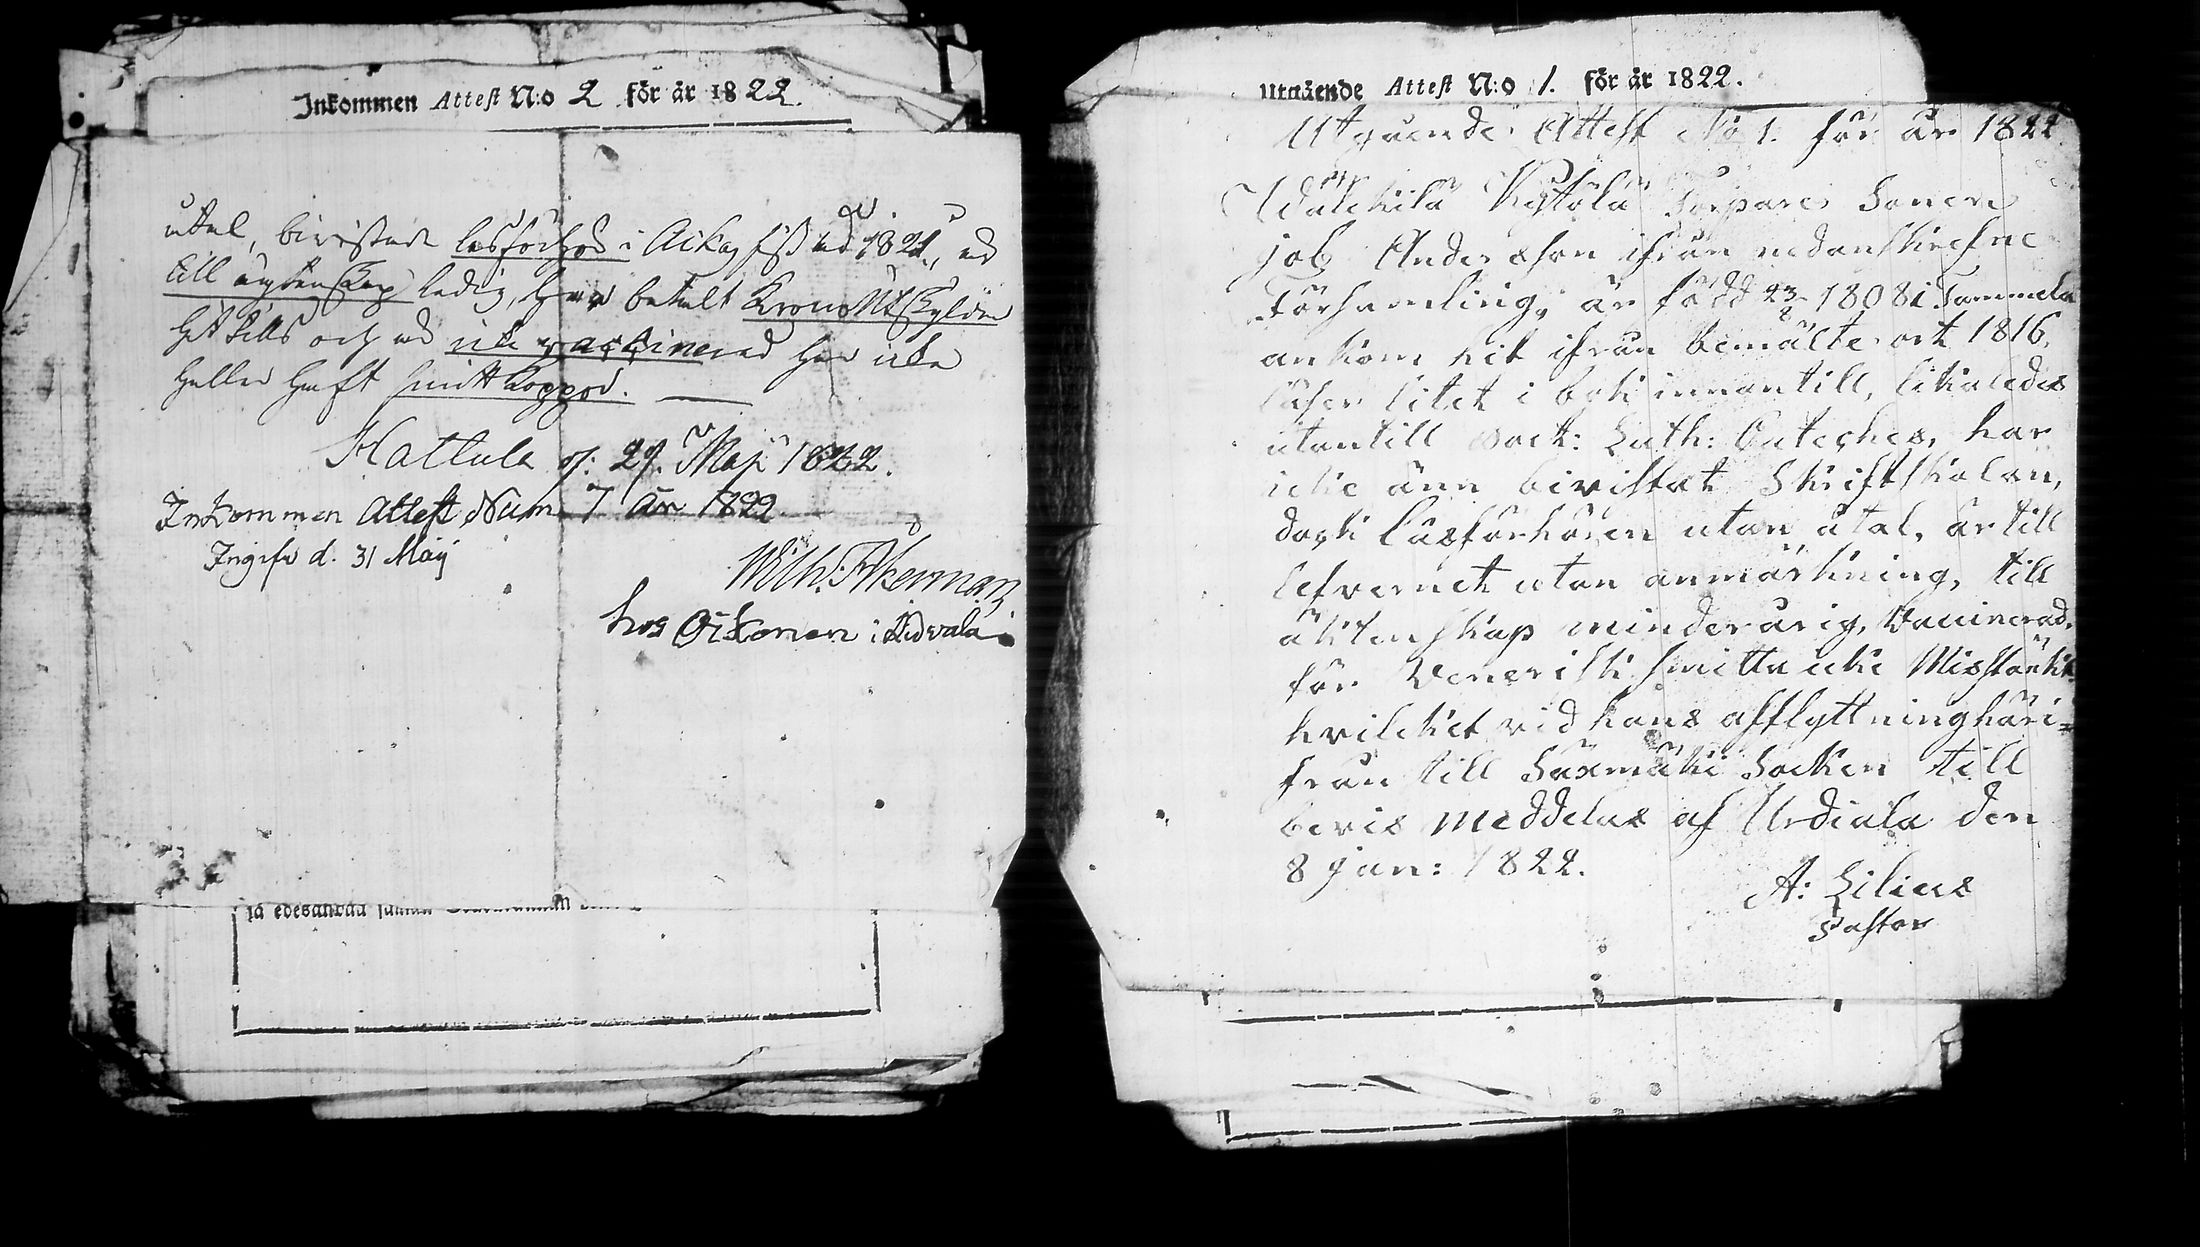 Inkommen Attest N:o 2 för år 1822.
utal, bivistade läsförhör i Aikas 1821, är
till ägtenskap ledig, har betalt Krono Utskylder
hit tills och är icke vaccinerad har icke
heller haft smittkoppor.
Hattula d. 29. Maji 1822.
Inkommen Attest Num 7 År 1822
Ingifv d. 31 Maij
Wilh. Åkerman
hos Oikonen i
ja edesanvaa
Utgående Attest N:o 1. för år 1822.
Utgående Attest No 1. för år 1822
Wälkilä Kystölä Torpare Sonen
Job Andersson ifrån nedanskrefne
Församling, är född 23/8 1808 i Tammela
ankom hit ifrån bemälte ort 1816,
läser litet i bok innantill, likaledes
utantill Doct: Luth: Cateches, har
icke änn bevistat Skriftskolan,
dock läsförhören utan åtal, är till
lefvernet utan anmärkning, till
äktenskap minderårig, Vaccinerad,
för Venerisk smitta icke Misstänkt
hvilcket vid hans afflyttning häri=
från till Säxmäki Socken till
bevis meddelas af Urdiala den
8 Jan: 1822.
A: Lilius
Pastor